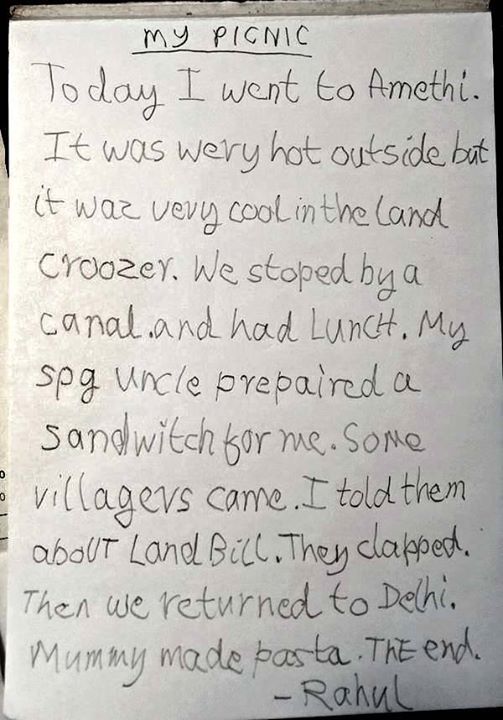 MY PICNIC
Today I went to Amethi.
It was wery hot outside but
it waz very cool in the Land
Croozer. We stoped by a
canal.and had LUNCH. My
spg Uncle prepaired a
sandwitch for me. Some
villagers came. I told them
aboUT Land Bill. They clapped.
Then we returned to Delhi.
Mummy made pasta. ThE end.
- Rahul